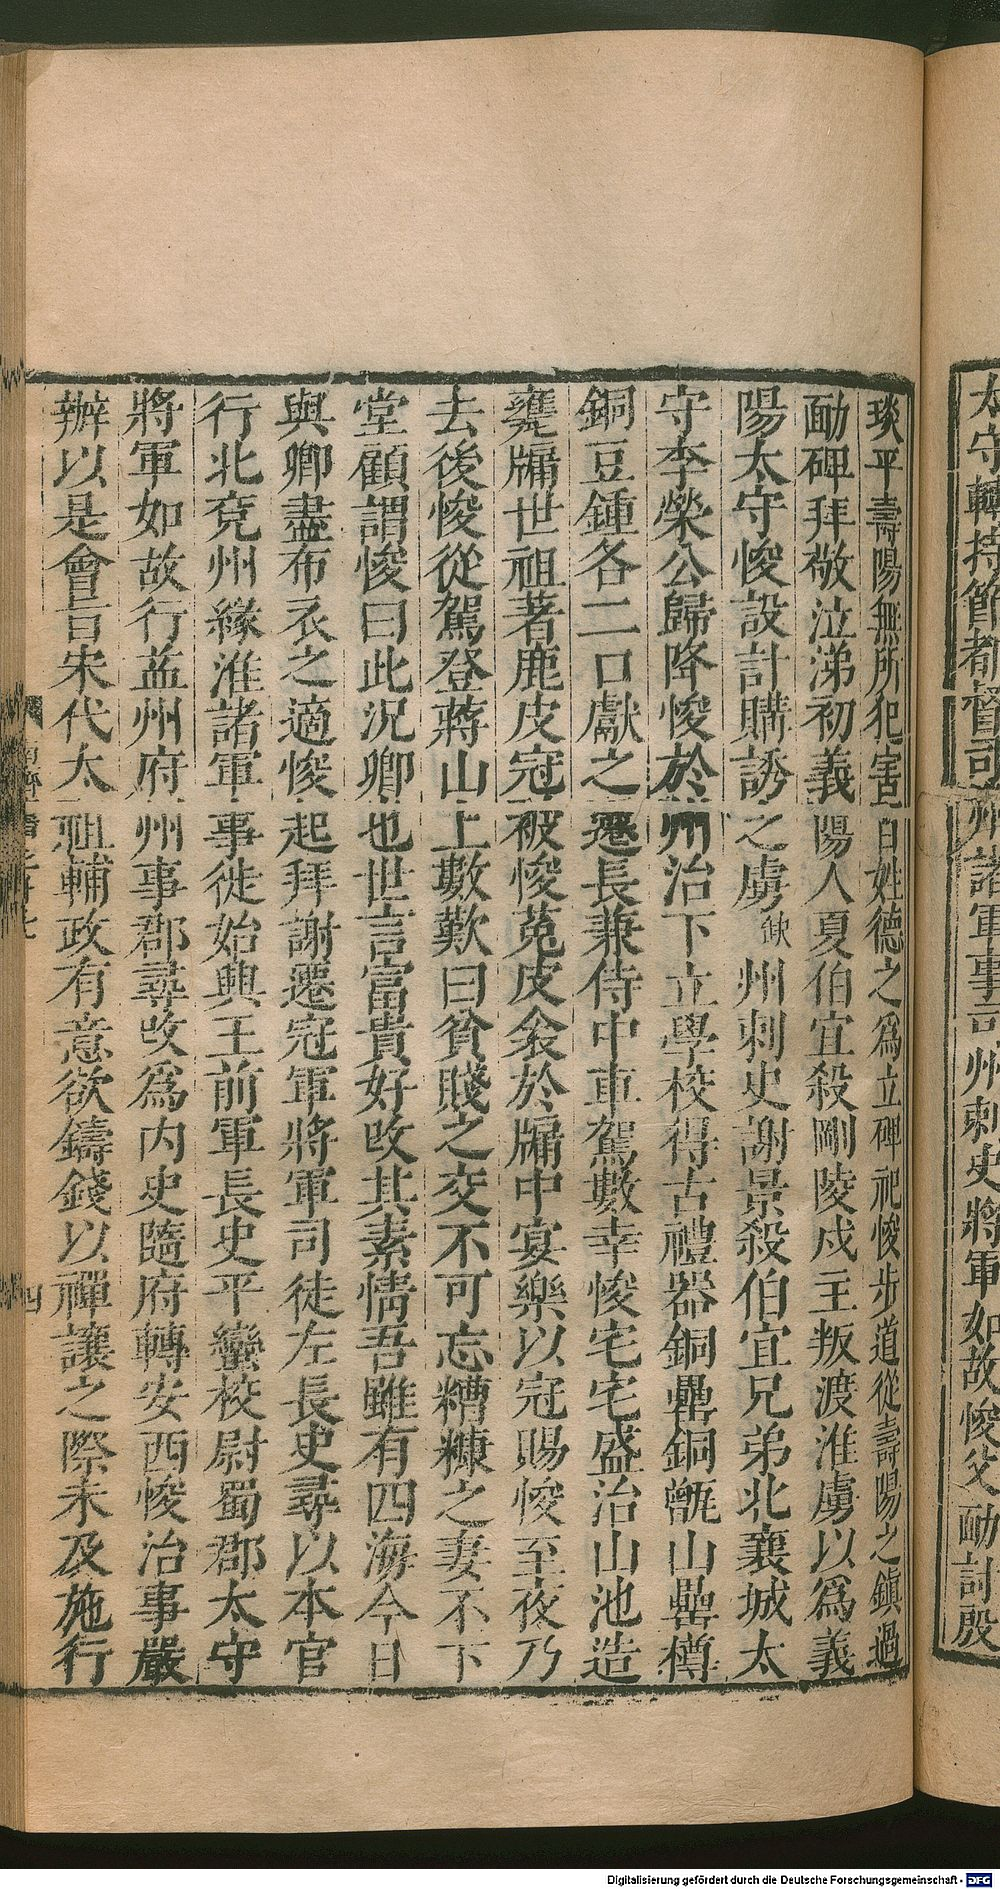 太守轉持節都督司州諸軍事司州刺史將軍如故悛父勔討殷
琰平壽陽無所犯害百姓德之爲立碑祀悛步道從壽陽之鎮過
勔碑拜敬泣涕初義陽人夏伯宜殺剛陵戍主叛渡淮虜以爲義
陽太守悛設計購誘之虜 缺 州刺史謝景殺伯宜兄弟北襄城太
守李榮公歸降悛於州治下立學校得古禮器銅罍銅甑山罍樽
銅豆鍾各二口獻之遷長兼侍中車駕數幸悛宅宅盛治山池造
甕牖世祖著鹿皮冠被悛菟皮衾於牖中宴樂以冠賜悛至夜乃
去後悛從駕登蔣山上數歎曰貧賤之交不可忘糟糠之妻不下
堂顧謂悛曰此況卿也世言富貴好改其素情吾雖有四海今日
與卿盡布衣之適悛起拜謝遷冠軍將軍司徒左長史尋以本官
行北兗州緣淮諸軍事徙始興王前軍長史平蠻校尉蜀郡太守
將軍如故行益州府州事郡尋改爲內史隨府轉安西悛治事嚴
辦以是會旨宋代太祖輔政有意欲鑄錢以禪讓之際未及施行
四
Digitalisierung gefördert durch die Deutsche Forschungsgemeinschaft - DFG